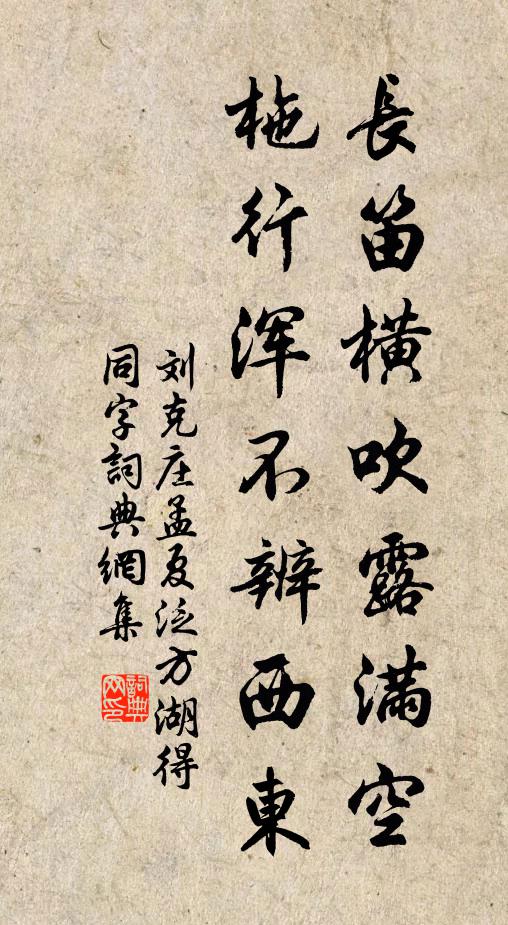 長笛橫吹露滿空
柂行浑不辨西東
刘克庄孟夏泛方湖得
同字詞典網集
詞典
网印